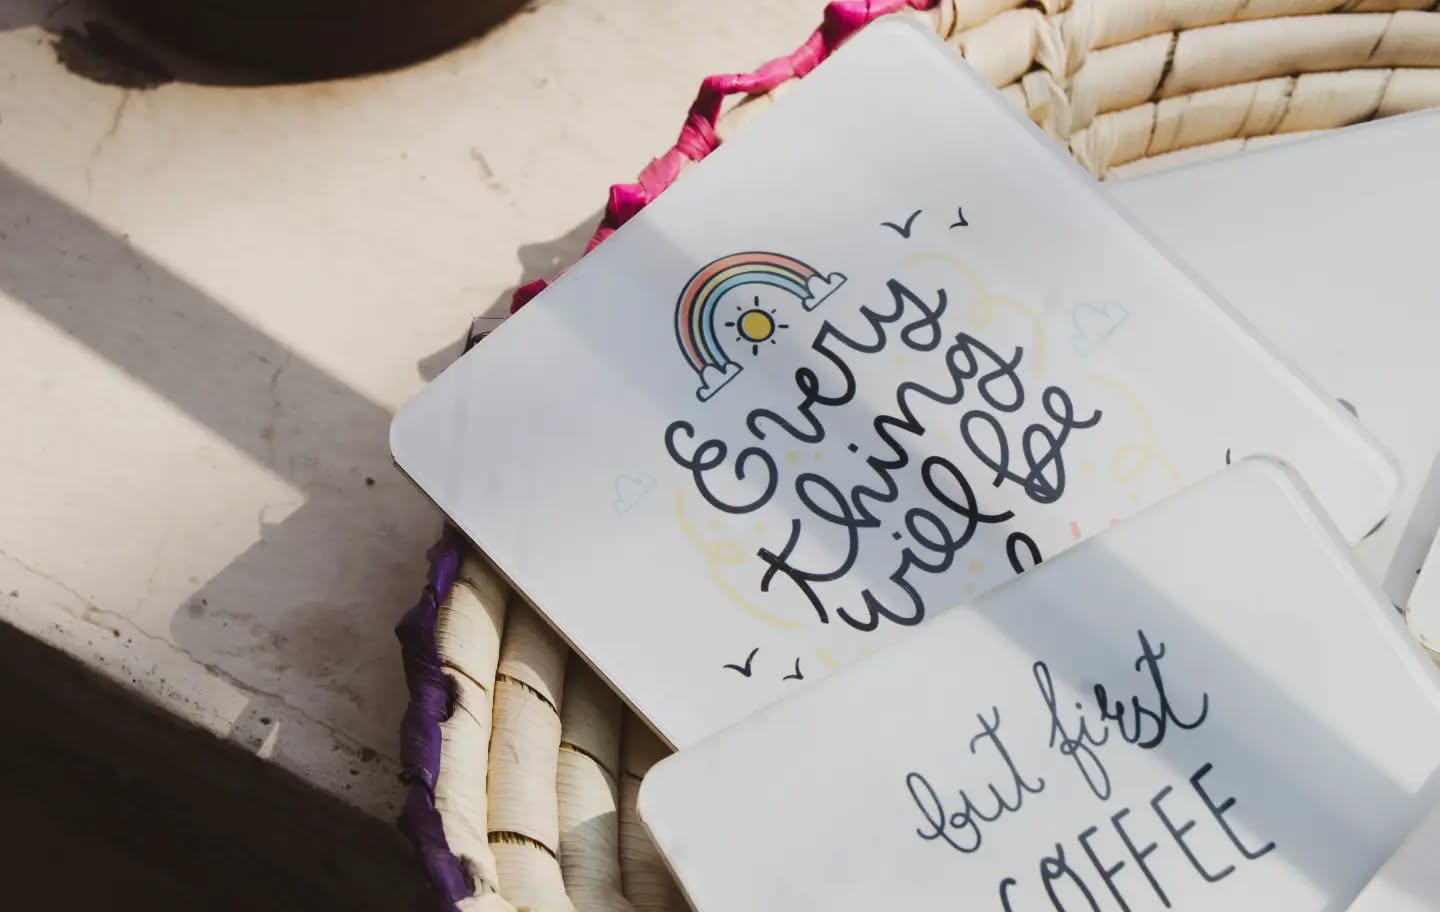 Every
thing
will be
but first
COFFEE